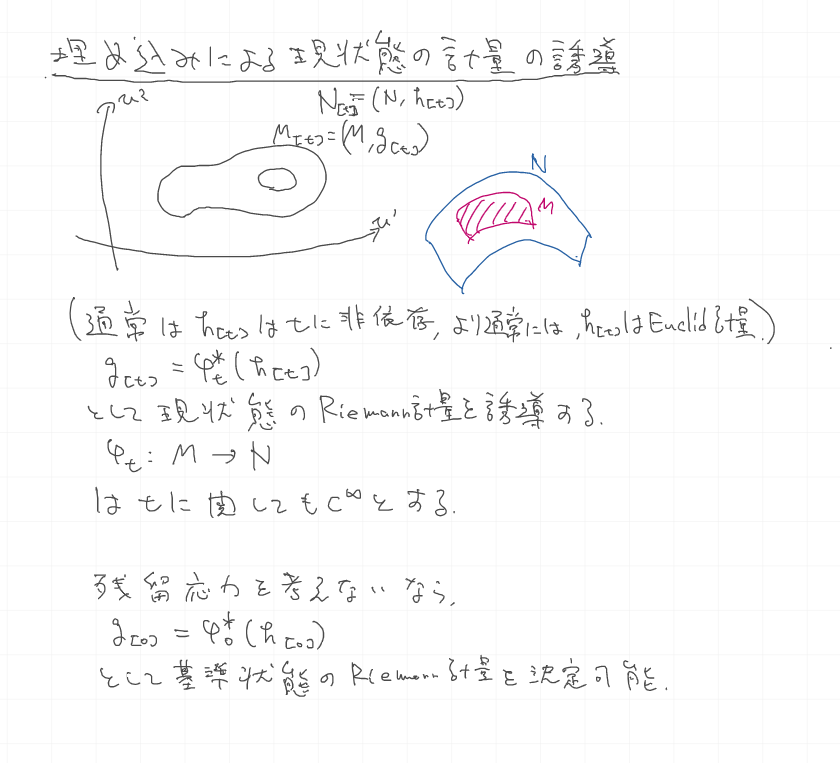 埋め込みによる現状態の計量の誘導
u²
N[t]=(N, h[t])
M[t]=(M, g[t])
N
M
u¹
(通常はh[t]はtに非依存, より通常には, h[t]はEuclid計量.)
g[t] = φt*(h[t])
として現状態のRiemann計量を誘導する.
φt: M → N
はtに関してもC∞とする.
残留応力を考えないなら,
g[0] = φ0*(h[0])
として基準状態のRiemann計量を決定可能.